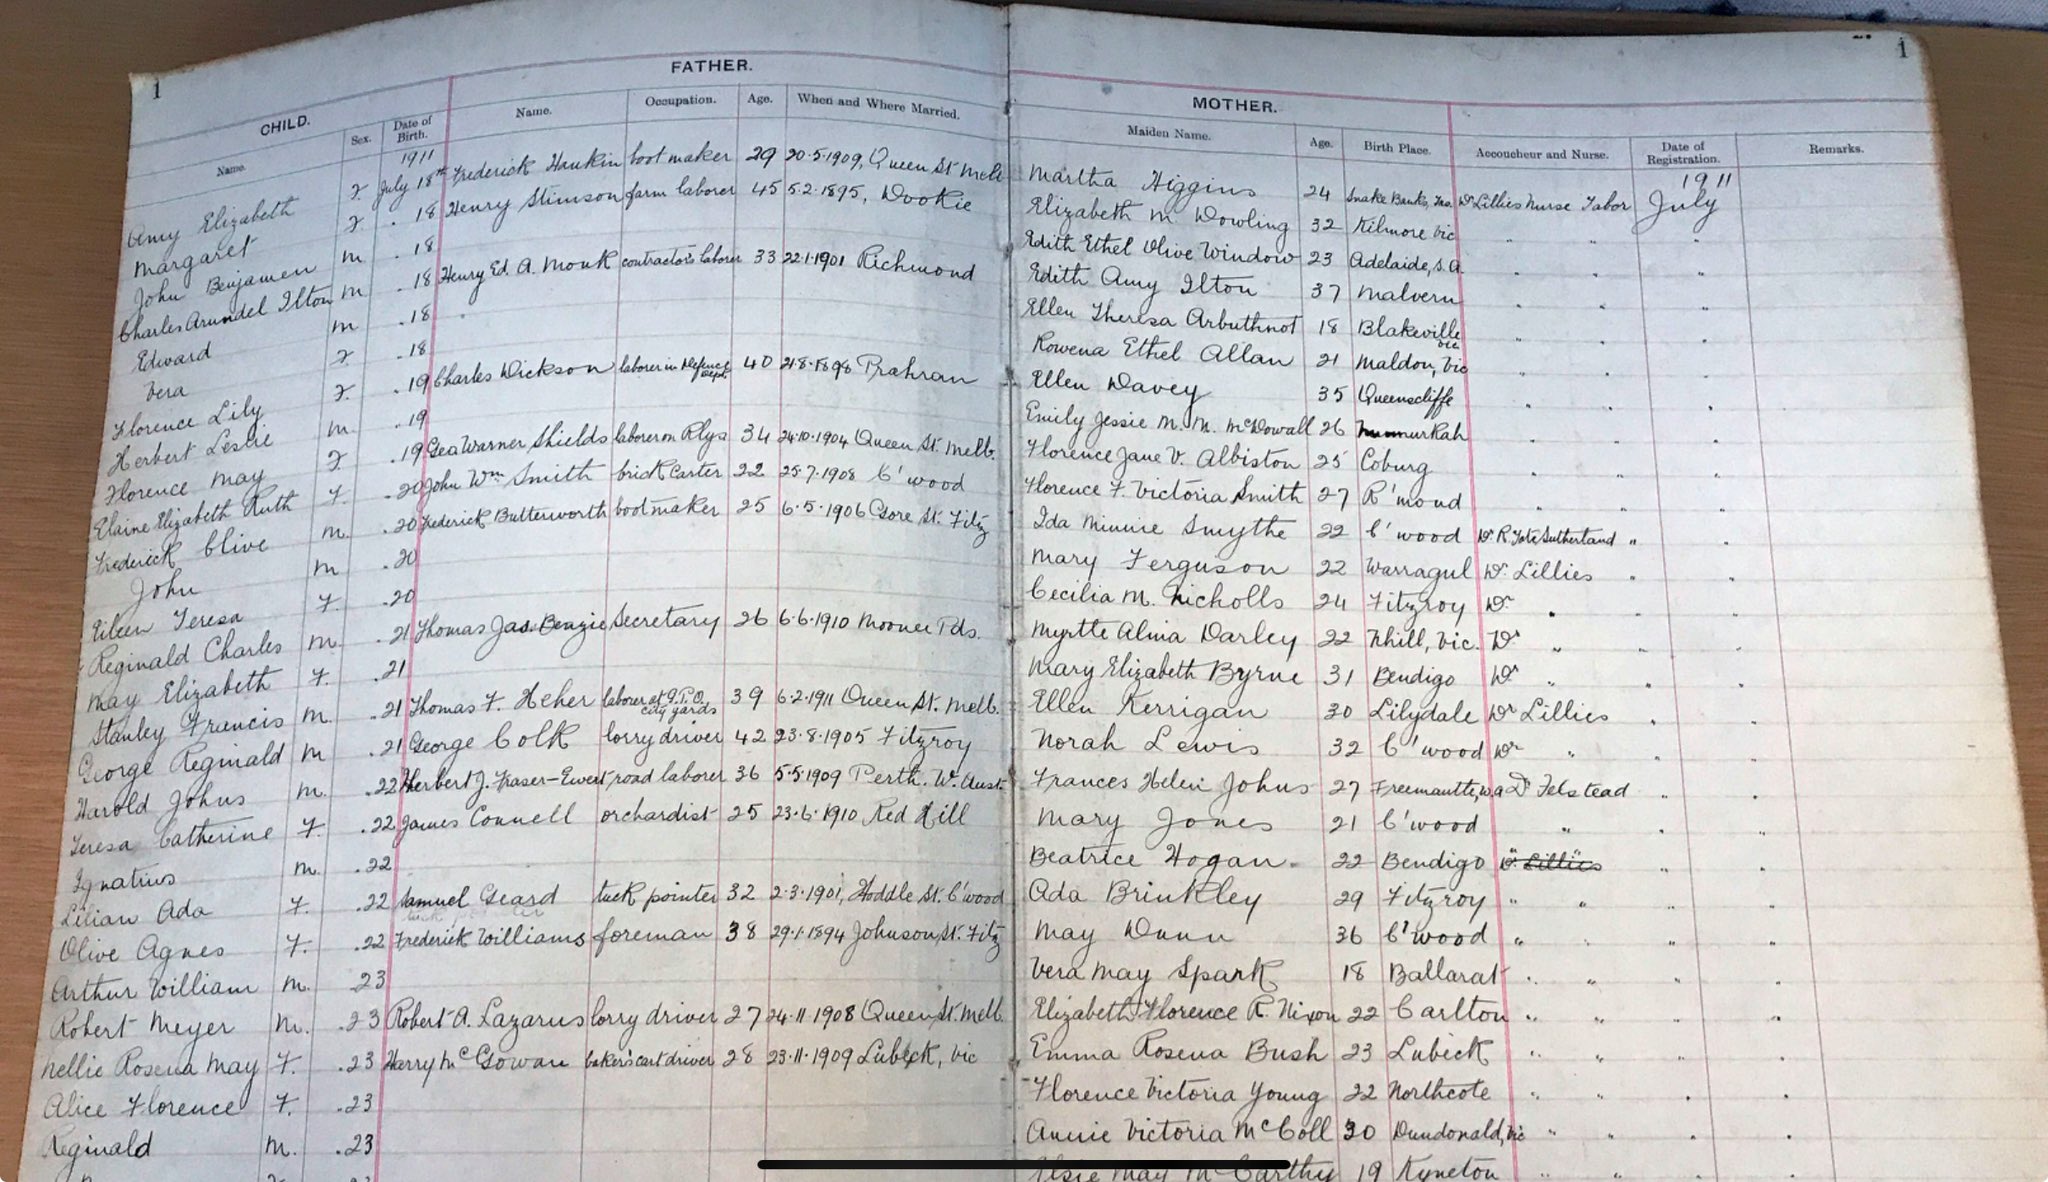 1 1
FATHER. MOTHER.
CHILD.
Name. Sex. Date of Birth. Name. Occupation. Age. When and Where Married. Maiden Name. Age. Birth Place. Accoucheur and Nurse. Date of Registration. Remarks.
1911 1911
Amy Elizabeth F. July 18th Frederick Hankin boot maker 29 20.5.1909, Queen St Melb Martha Higgins 24 Snake Banks, Tas. Dr Lillies Nurse Tabor July
Margaret F . 18 Henry Stimson farm laborer 45 5.2.1895, Dookie Elizabeth M. Dowling 32 Kilmore Vic " " "
John Benjamen M . 18 Edith Ethel Olive Window 23 Adelaide, S.A. " "
Charles Arundel Ilton M . 18 Henry Ed. A. Monk contractor's laborer 33 22.1.1901 Richmond Edith Amy Ilton 37 Malvern " " "
Edward M . 18 Ellen Theresa Arbuthnot 18 Blakeville Vic " " "
Vera F . 18 Rowena Ethel Allan 21 Maldon, Vic " " "
Florence Lily F. . 19 Charles Dickson laborer in Defence Dept. 40 21.8.1898 Prahran Ellen Davey 35 Queenscliffe " " "
Herbert Leslie M . 19 Emily Jessie M. M. McDowall 26 " " "
Florence May F . 19 Geo Warner Shields laborer on Rlys 34 24.10.1904 Queen St. Melb. Florence Jane V. Albiston 25 Coburg " " "
Elaine Elizabeth Ruth F . 20 John Wm Smith brick carter 22 25.7.1908 C'wood Florence F. Victoria Smith 27 R'mond " " "
Frederick Clive M. . 20 Frederick Butterworth boot maker 25 6.5.1906 Gore St. Fitz Ida Minnie Smythe 22 C'wood Dr R. Sutherland " "
John M . 20 Mary Ferguson 22 Warragul Dr. Lillies " "
Eileen Teresa F. . 20 Cecilia M. Nicholls 24 Fitzroy Dr " " "
Reginald Charles M. . 21 Thomas Jas. Benzie Secretary 26 6.6.1910 Moonee Pds. Myrtle Alma Darley 22 Nhill, Vic. Dr " " "
May Elizabeth F. . 21 Mary Elizabeth Byrne 31 Bendigo Dr " " "
Stanley Francis M. . 21 Thomas F. Heher laborer at G.P.O. city yards 39 6.2.1911 Queen St. Melb. Ellen Kerrigan 30 Lilydale Dr Lillies " "
George Reginald M . 21 George Colk lorry driver 42 23.8.1905 Fitzroy Norah Lewis 32 C'wood Dr " " "
Harold Johns M. . 22 Herbert J. Fraser-Ewert road laborer 36 5.5.1909 Perth. W. Aust. Frances Helen Johns 27 Freemantle, W.A Dr Felstead " "
Teresa Catherine F. . 22 James Connell orchardist 25 23.6.1910 Red Hill Mary Jones 21 C'wood " " "
Ignatius M. . 22 Beatrice Hogan 22 Bendigo Dr. Lillies " "
Lilian Ada F. . 22 Samuel Geard tuck pointer 32 2.3.1901, Hoddle St. C'wood Ada Brinkley 29 Fitzroy " " " "
Olive Agnes F. . 22 Frederick Williams foreman 38 29.1.1894 Johnson St. Fitz May Dunn 36 C'wood " " " "
Arthur William M. 23 Vera May Spark 18 Ballarat " " " "
Robert Meyer M. . 23 Robert A. Lazarus lorry driver 27 24.11.1908 Queen St. Melb. Elizabeth Florence R. Nixon 22 Carlton " " " "
Nellie Rosena May F. . 23 Harry McGowan baker's cart driver 28 23.11.1909 Lubeck, Vic Emma Rosena Bush 23 Lubeck " " " "
Alice Florence F. . 23 Florence Victoria Young 22 Northcote " " " "
Reginald M. . 23 Annie Victoria McColl 30 Dundonald, Vic " " " "
Elsie May McCarthy 19 Kyneton " " " "